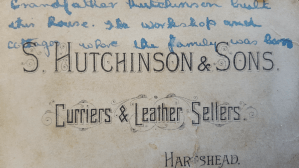 Grandfather Hutchinson built
this house. The workshop and
cottage where the family was born
S. HUTCHINSON & SONS.
Curriers & Leather Sellers.
HARTSHEAD.